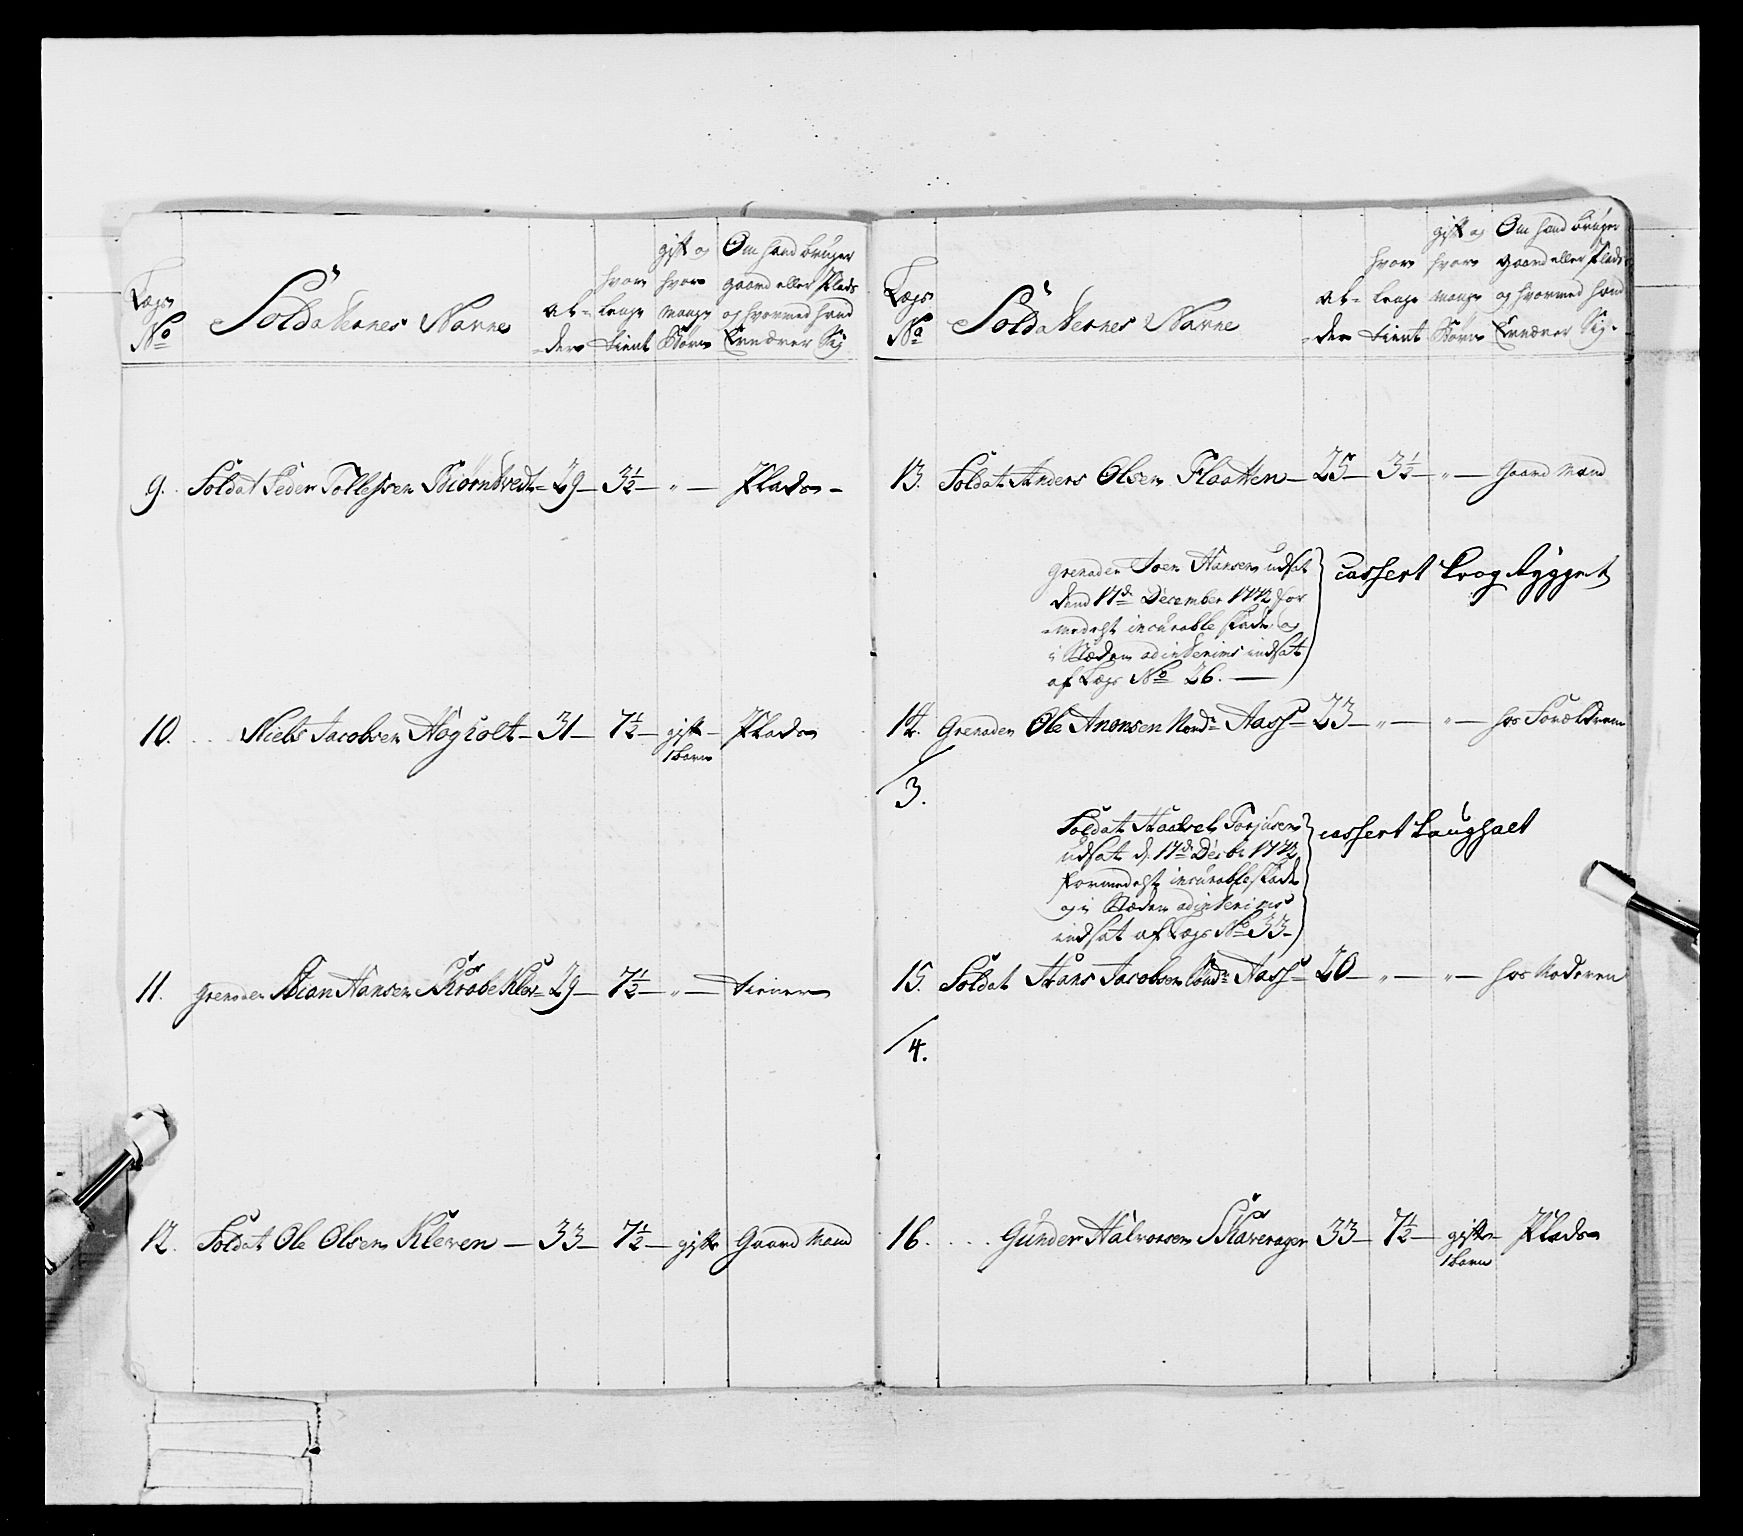 Lægs
No
Soldaternes Navne
Al-
der
hvor
lenge
tient
gift og
hvor
mange
Børn
Om hand bruger
gaard eller Plads
og hvormed hand
Ernærer Sig
9. Soldat Peder Tollefsen Biørntvedt - 29 - 3½ - " - Plads -
10. . . . Niels Jacobsen Høgholt - 31 - 7½ - gift - Plads
1 barn
11. Grenadeer Hansen Klev - 29 - 7½ - " - tiener
12. Soldat Ole Olsen Kleven - 33 - 7½ - gift Gaard Mand
Lægs
No
Soldaternes Navne
Al-
der
hvor
lenge
tient
gift og
hvor
mange
Børn
Om hand bruger
gaard eller Plads
og hvormed hand
Ernærer Sig.
13. Soldat Anders Olsen Flaatten - 25 - 3½ - " - Gaard Mand
Grenadeer Hansen udsat
dend 17de December 1772 for
-medelst incurable skade og
i Stæden adinterims indsat
af Lægs No 26. -
cassert Krog Rygget
14. Grenadeer Ole Anonsen Nordr Aass - 23 - " - " - hos Forældrene
/3.
Soldat Torjusen
udsat d. 17de Decbr 1772
formedelst incurable skade
og i Stæden adinterims
indsat af Lægs No 33 -
cassert Laughalt
15. Soldat Hans Jacobsen Aass - 20 - " - " - hos Moderen
/4.
16. . . . Gunder Halvorsen Skaverager 33 - 7½ - gift - Plads
1 barn